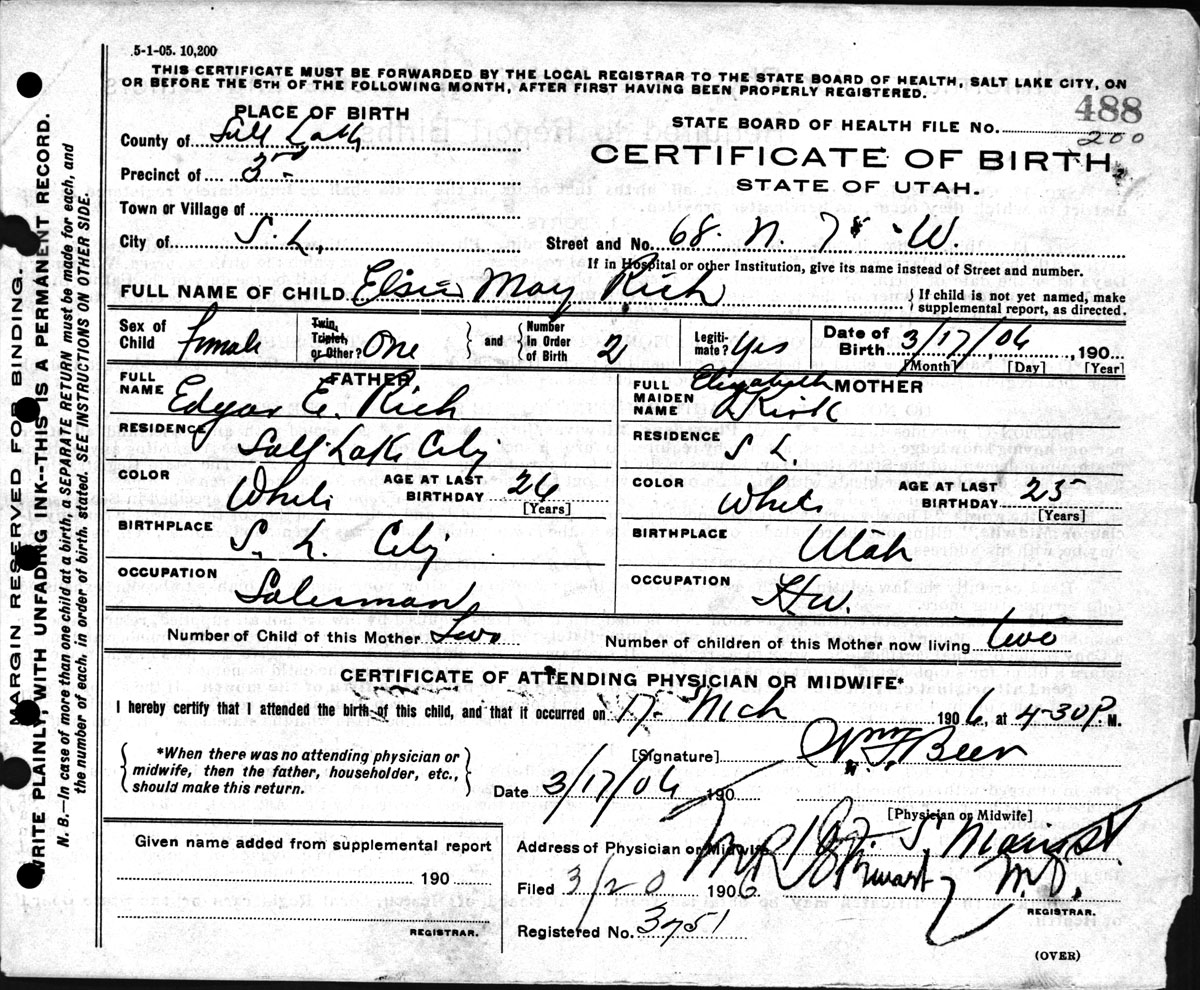 5-1-05. 10,200
THIS CERTIFICATE MUST BE FORWARDED BY THE LOCAL REGISTRAR TO THE STATE BOARD OF HEALTH, SALT LAKE CITY, ON
OR BEFORE THE 5TH OF THE FOLLOWING MONTH, AFTER FIRST HAVING BEEN PROPERLY REGISTERED.
488
PLACE OF BIRTH
STATE BOARD OF HEALTH FILE No. 200
County of Salt Lake
CERTIFICATE OF BIRTH
Precinct of
STATE OF UTAH.
Town or Village of
City of S. L. Street and No. 68 N. 7 W.
If in Hospital or other Institution, give its name instead of Street and number.
FULL NAME OF CHILD Elsie May Rich
If child is not yet named, make
supplemental report, as directed.
Sex of Child female
Twin, Triplet, or Other? One
and
Number In Order of Birth 2
Legiti-mate? Yes
Date of Birth 3/17/06, 190
[Month] [Day] [Year]
FATHER
FULL NAME Edgar E. Rich
RESIDENCE Salt Lake City
COLOR White AGE AT LAST BIRTHDAY 26 [Years]
BIRTHPLACE S. L. City
OCCUPATION Salesman
MOTHER
FULL MAIDEN NAME Elizabeth Kirk
RESIDENCE S L.
COLOR White AGE AT LAST BIRTHDAY 25 [Years]
BIRTHPLACE Utah
OCCUPATION H.W.
Number of Child of this Mother Two
Number of children of this Mother now living two
CERTIFICATE OF ATTENDING PHYSICIAN OR MIDWIFE*
I hereby certify that I attended the birth of this child, and that it occurred on 17 Mch 1906, at 4-30 P. M.
*When there was no attending physician or
midwife, then the father, householder, etc.,
should make this return.
[Signature] Wm F Beer
Date 3/17/06 190
[Physician or Midwife]
Given name added from supplemental report
190
REGISTRAR.
Address of Physician or Midwife
Filed 3/20 1906
Stewart M.D.
REGISTRAR.
Registered No. 3751
(OVER)
MARGIN RESERVED FOR BINDING.
WRITE PLAINLY, WITH UNFADING INK--THIS IS A PERMANENT RECORD.
N. B.—In case of more than one child at a birth, a SEPARATE RETURN must be made for each, and
the number of each, in order of birth, stated. SEE INSTRUCTIONS ON OTHER SIDE.